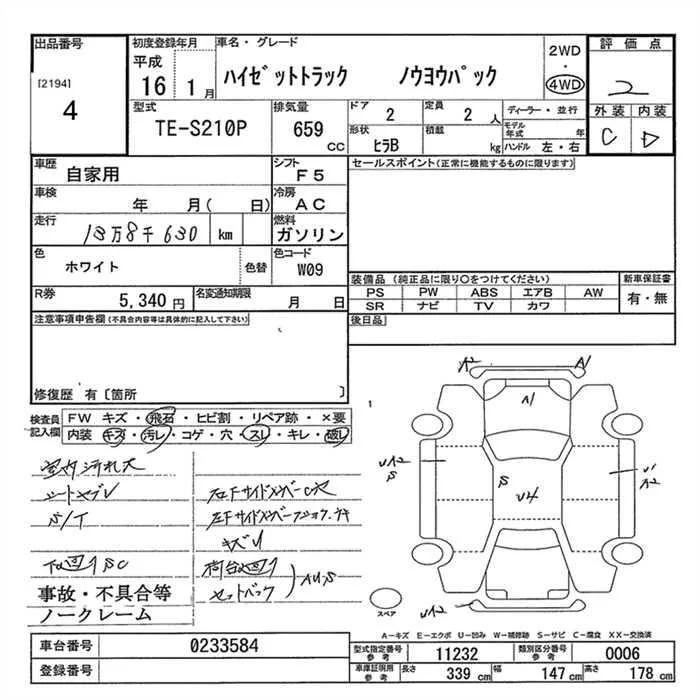 出品番号
[2194]
4
初度登録年月
平成
16 1月
車名・グレード
ハイゼットトラック ノウヨウパック
2WD
・
4WD
評価点
2
外装 内装
C D
型式
TE-S210P
排気量
659
CC
ドア
2
定員
2人
ディーラー・並行
形状
ヒラB
積載
kg
モデル年式
年
ハンドル 左・右
車歴
自家用
シフト
F5
車検
年 月( 日)
冷房
AC
走行
13万8千630 km
燃料
ガソリン
色
ホワイト
色替
色コード
W09
R券
5,340円
名変通知期限
月 日
セールスポイント(正常に機能するものに限ります)
装備品(純正品に限り○をつけてください)
PS PW ABS エアB AW
SR ナビ TV カワ
新車保証書
有・無
後日品
注意事項申告欄(不具合内容等は具体的に記入して下さい)
修復歴 有〔箇所 〕
検査員
記入欄
FW キズ・飛石・ヒビ割・リペア跡・×要
内装 キズ・汚レ・コゲ・穴・スレ・キレ・破レ
室内汚れ大
シートヤブレ
S/T
下廻りSC
事故・不具合等
ノークレーム
右Fサイドメンバー
左Fサイドメンバー
キズU
荷台廻り
セットバック
AUS
1
A2
A1
A1
UA2
S
S
U4
U1
A2
UA2
スペア
A-キズ E-エクボ U-凹み W-補修跡 S-サビ C-腐食 XX-交換済
車台番号
0233584
登録番号
型式指定番号
参考
11232
類別区分番号
参考
0006
車庫証明用
参考
長さ
339 cm
幅
147 cm
高さ
178 cm